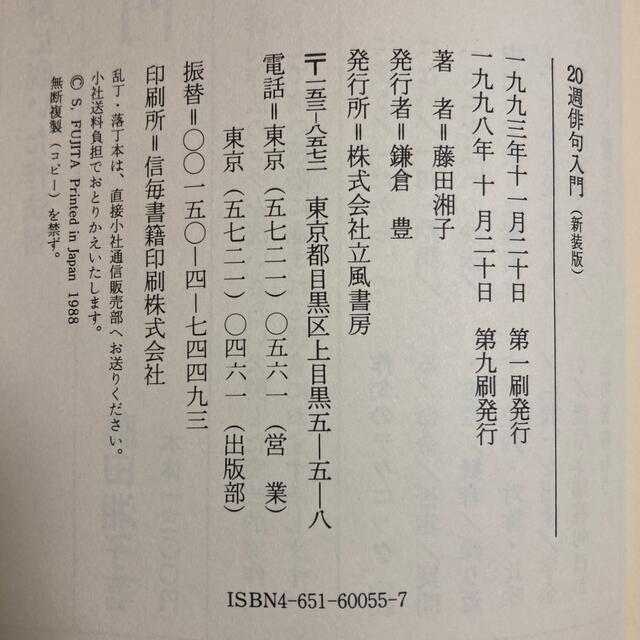 20週俳句入門（新装版）
一九九三年十一月二十日　第一刷発行
一九九八年 十 月二十日　第九刷発行
著　者＝藤田湘子
発行者＝鎌倉　豊
発行所＝株式会社立風書房
〒一五三―八五七二　東京都目黒区上目黒五―五―八
電話＝東京（五七二一）〇五六一（営　業）
東京（五七二一）〇四六一（出版部）
振替＝〇〇一五〇―四―七四四九三
印刷所＝信毎書籍印刷株式会社
乱丁・落丁本は、直接小社通信販売部へお送りください。
小社送料負担でおとりかえいたします。
© S. FUJITA Printed in Japan 1988
無断複製（コピー）を禁ず。
ISBN4-651-60055-7